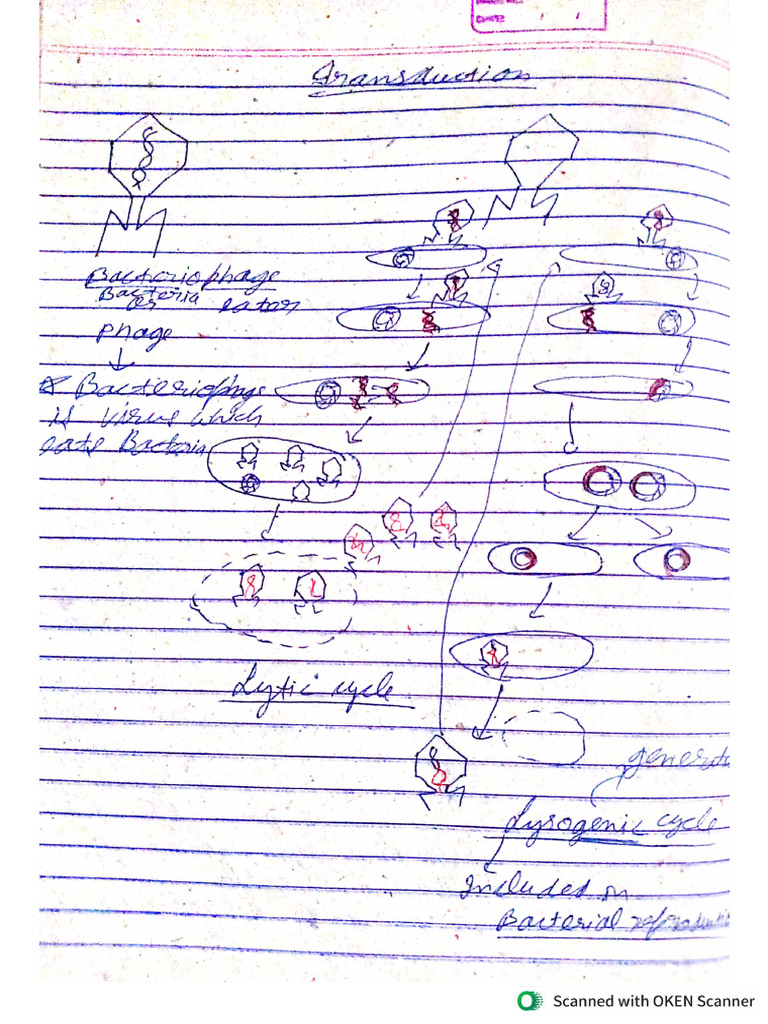 Transduction
Bacteriophage
Bacteria eater
or
Phage
* Bacteriophage
is virus which
eats Bacteria
Lytic cycle
Lysogenic cycle
Included on
Bacterial
Scanned with OKEN Scanner